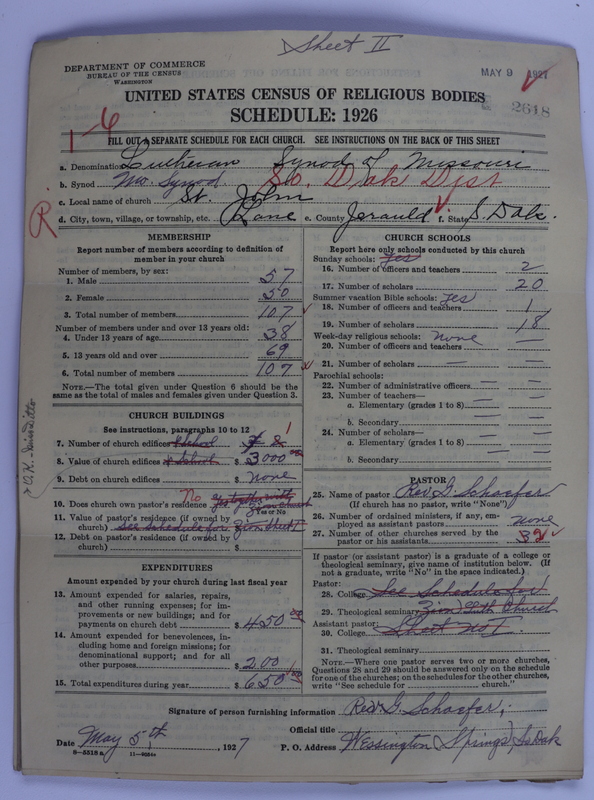 Sheet II
DEPARTMENT OF COMMERCE
BUREAU OF THE CENSUS
WASHINGTON
MAY 9 1927
UNITED STATES CENSUS OF RELIGIOUS BODIES
2618
SCHEDULE: 1926
1-6
FILL OUT A SEPARATE SCHEDULE FOR EACH CHURCH. SEE INSTRUCTIONS ON THE BACK OF THIS SHEET
a. Denomination Lutheran Synod of Missouri
b. Synod Mo. Synod. So. Dak Dist
c. Local name of church St. John
R
d. City, town, village, or township, etc. Lane e. County Jerauld f. State S. Dak.
MEMBERSHIP
Report number of members according to definition of
member in your church
Number of members, by sex:
1. Male 57
2. Female 50
3. Total number of members 107
Number of members under and over 13 years old:
4. Under 13 years of age 38
5. 13 years old and over 69
6. Total number of members 107
NOTE.—The total given under Question 6 should be
same as the total of males and females given under Question 3.
CHURCH BUILDINGS
See instructions, paragraphs 10 to 12
7. Number of church edifices & School 1
8. Value of church edifices & School $ 3000
9. Debt on church edifices $ none
O.K.
10. Does church own pastor's residence No
Yes or No
11. Value of pastor's residence (if owned by
church) See Schedule for $
12. Debt on pastor's residence (if owned by
church) $
EXPENDITURES
Amount expended by your church during last fiscal year
13. Amount expended for salaries, repairs,
and other running expenses; for im-
provements or new buildings; and for
payments on church debt $ 450
14. Amount expended for benevolences, in-
cluding home and foreign missions; for
denominational support; and for all
other purposes $ 200
15. Total expenditures during year $ 650
CHURCH SCHOOLS
Report here only schools conducted by this church
Sunday schools: Yes
16. Number of officers and teachers 2
17. Number of scholars 20
Summer vacation Bible schools: Yes
18. Number of officers and teachers 1
19. Number of scholars 18
Week-day religious schools: none
20. Number of officers and teachers —
21. Number of scholars —
Parochial schools:
22. Number of administrative officers —
23. Number of teachers—
a. Elementary (grades 1 to 8) —
b. Secondary —
24. Number of scholars—
a. Elementary (grades 1 to 8) —
b. Secondary —
PASTOR
25. Name of pastor Rev. G. Schaefer
(If church has no pastor, write "None")
26. Number of ordained ministers, if any, em-
ployed as assistant pastors none
27. Number of other churches served by the
pastor or his assistants 2
If pastor (or assistant pastor) is a graduate of a college or
theological seminary, give name of institution below. (If
not a graduate, write "No" in the space indicated.)
Pastor:
28. College See Schedule for
29. Theological seminary Zion Luth Church
Assistant pastor:
30. College Sheet No I.
31. Theological seminary
NOTE.—Where one pastor serves two or more churches,
Questions 28 and 29 should be answered only on the schedule
for one of the churches; on the schedules for the other churches,
write "See schedule for church."
Signature of person furnishing information Rev. G. Schaefer,
Official title
Date May 5th, 1927 P. O. Address Wessington Springs, So Dak
8—5518a 11—9054